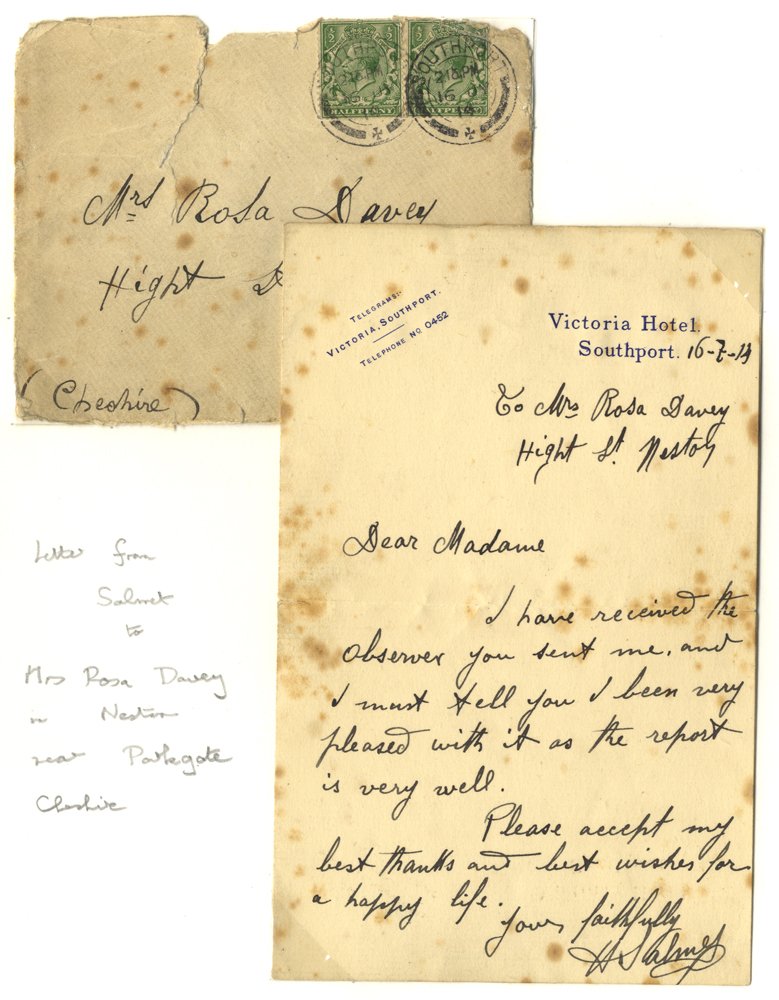 SOUTHPORT
HALFPENNY
SOUTHPORT
2 15 PM
16
14
HALFPENNY
Mrs Rosa Davey
Hight
(Cheshire)
TELEGRAMS:-
VICTORIA, SOUTHPORT.
TELEPHONE NO 0452
Victoria Hotel.
Southport. 16-7-14
To Mrs Rosa Davey
Hight St. Neston
Dear Madame
I have received the
observer you sent me, and
I must tell you I been very
pleased with it as the report
is very well.
Please accept my
best thanks and best wishes for
a happy life.
yours faithfully
H Salmet
Letter from
Salmet
to
Mrs Rosa Davey
in Neston
near Parkgate
Cheshire